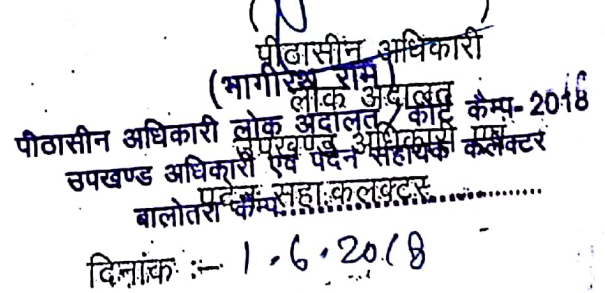 पीठासीन अधिकारी
(भागीरथ राम)
लोक अदालत
पीठासीन अधिकारी लोक अदालत / कोर्ट कैम्प- 2018
उपखण्ड अधिकारी एवं
उपखण्ड अधिकारी एवं पदेन सहायक कलेक्टर
पदेन सहा.कलक्टर
बालोतरा कैम्प....................................
दिनांक :- 1.6.2018